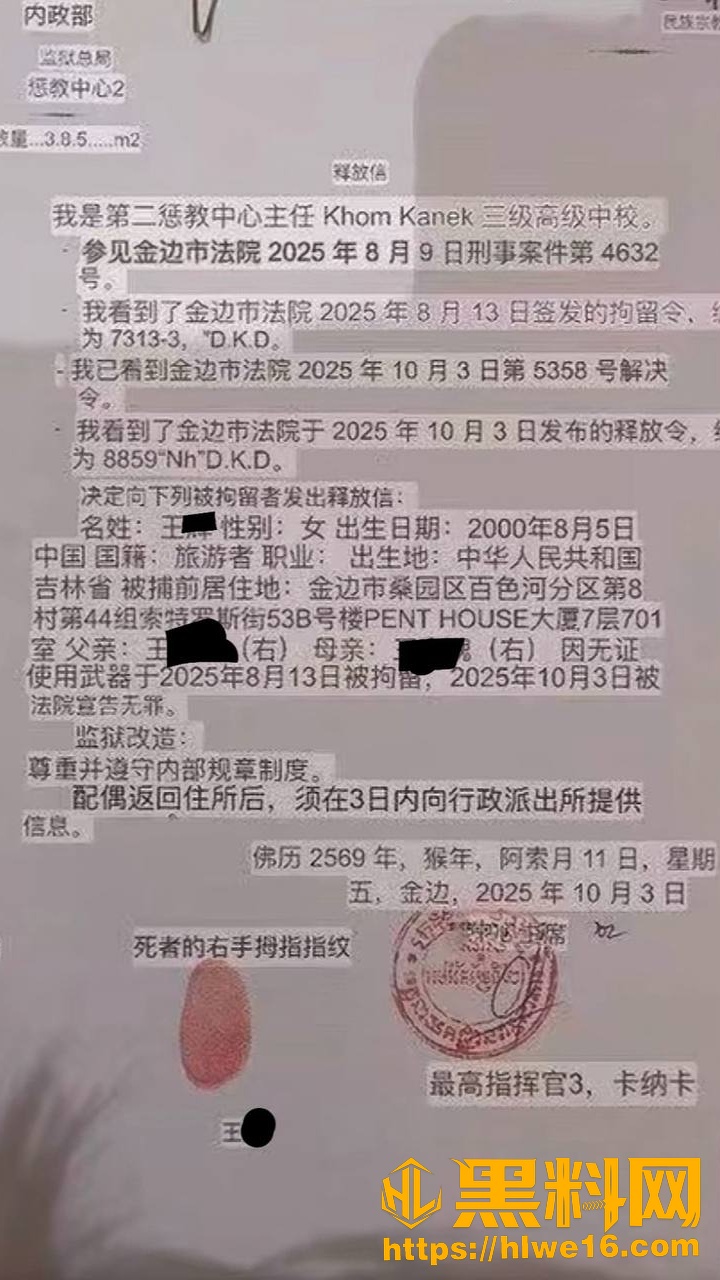 内政部
民族宗教
监狱总局
惩教中心2
数量...3.8.5.....m2
释放信
我是第二惩教中心主任 Khom Kanek 三级高级中校。
- 参见金边市法院 2025 年 8 月 9 日刑事案件第 4632
号。
- 我看到了金边市法院 2025 年 8 月 13 日签发的拘留令，
为 7313-3，"D.K.D。
- 我已看到金边市法院 2025 年 10 月 3 日第 5358 号解决
令。
- 我看到了金边市法院于 2025 年 10 月 3 日发布的释放令，
为 8859“Nh”D.K.D。
决定向下列被拘留者发出释放信：
名姓： 王 性别： 女 出生日期： 2000年8月5日
中国 国籍： 旅游者 职业： 出生地： 中华人民共和国
吉林省 被捕前居住地： 金边市桑园区百色河分区第8
村第44组索特罗斯街53B号楼PENT HOUSE大厦7层701
室 父亲： 王 （右） 母亲： （右） 因无证
使用武器于2025年8月13日被拘留，2025年10月3日被
法院宣告无罪。
监狱改造：
尊重并遵守内部规章制度。
配偶返回住所后，须在3日内向行政派出所提供
信息。
佛历 2569 年，猴年，阿索月 11 日，星期
五，金边，2025 年 10 月 3 日
死者的右手拇指指纹
最高指挥官3，卡纳卡
王
HL 黑料网
https://hlwe16.com